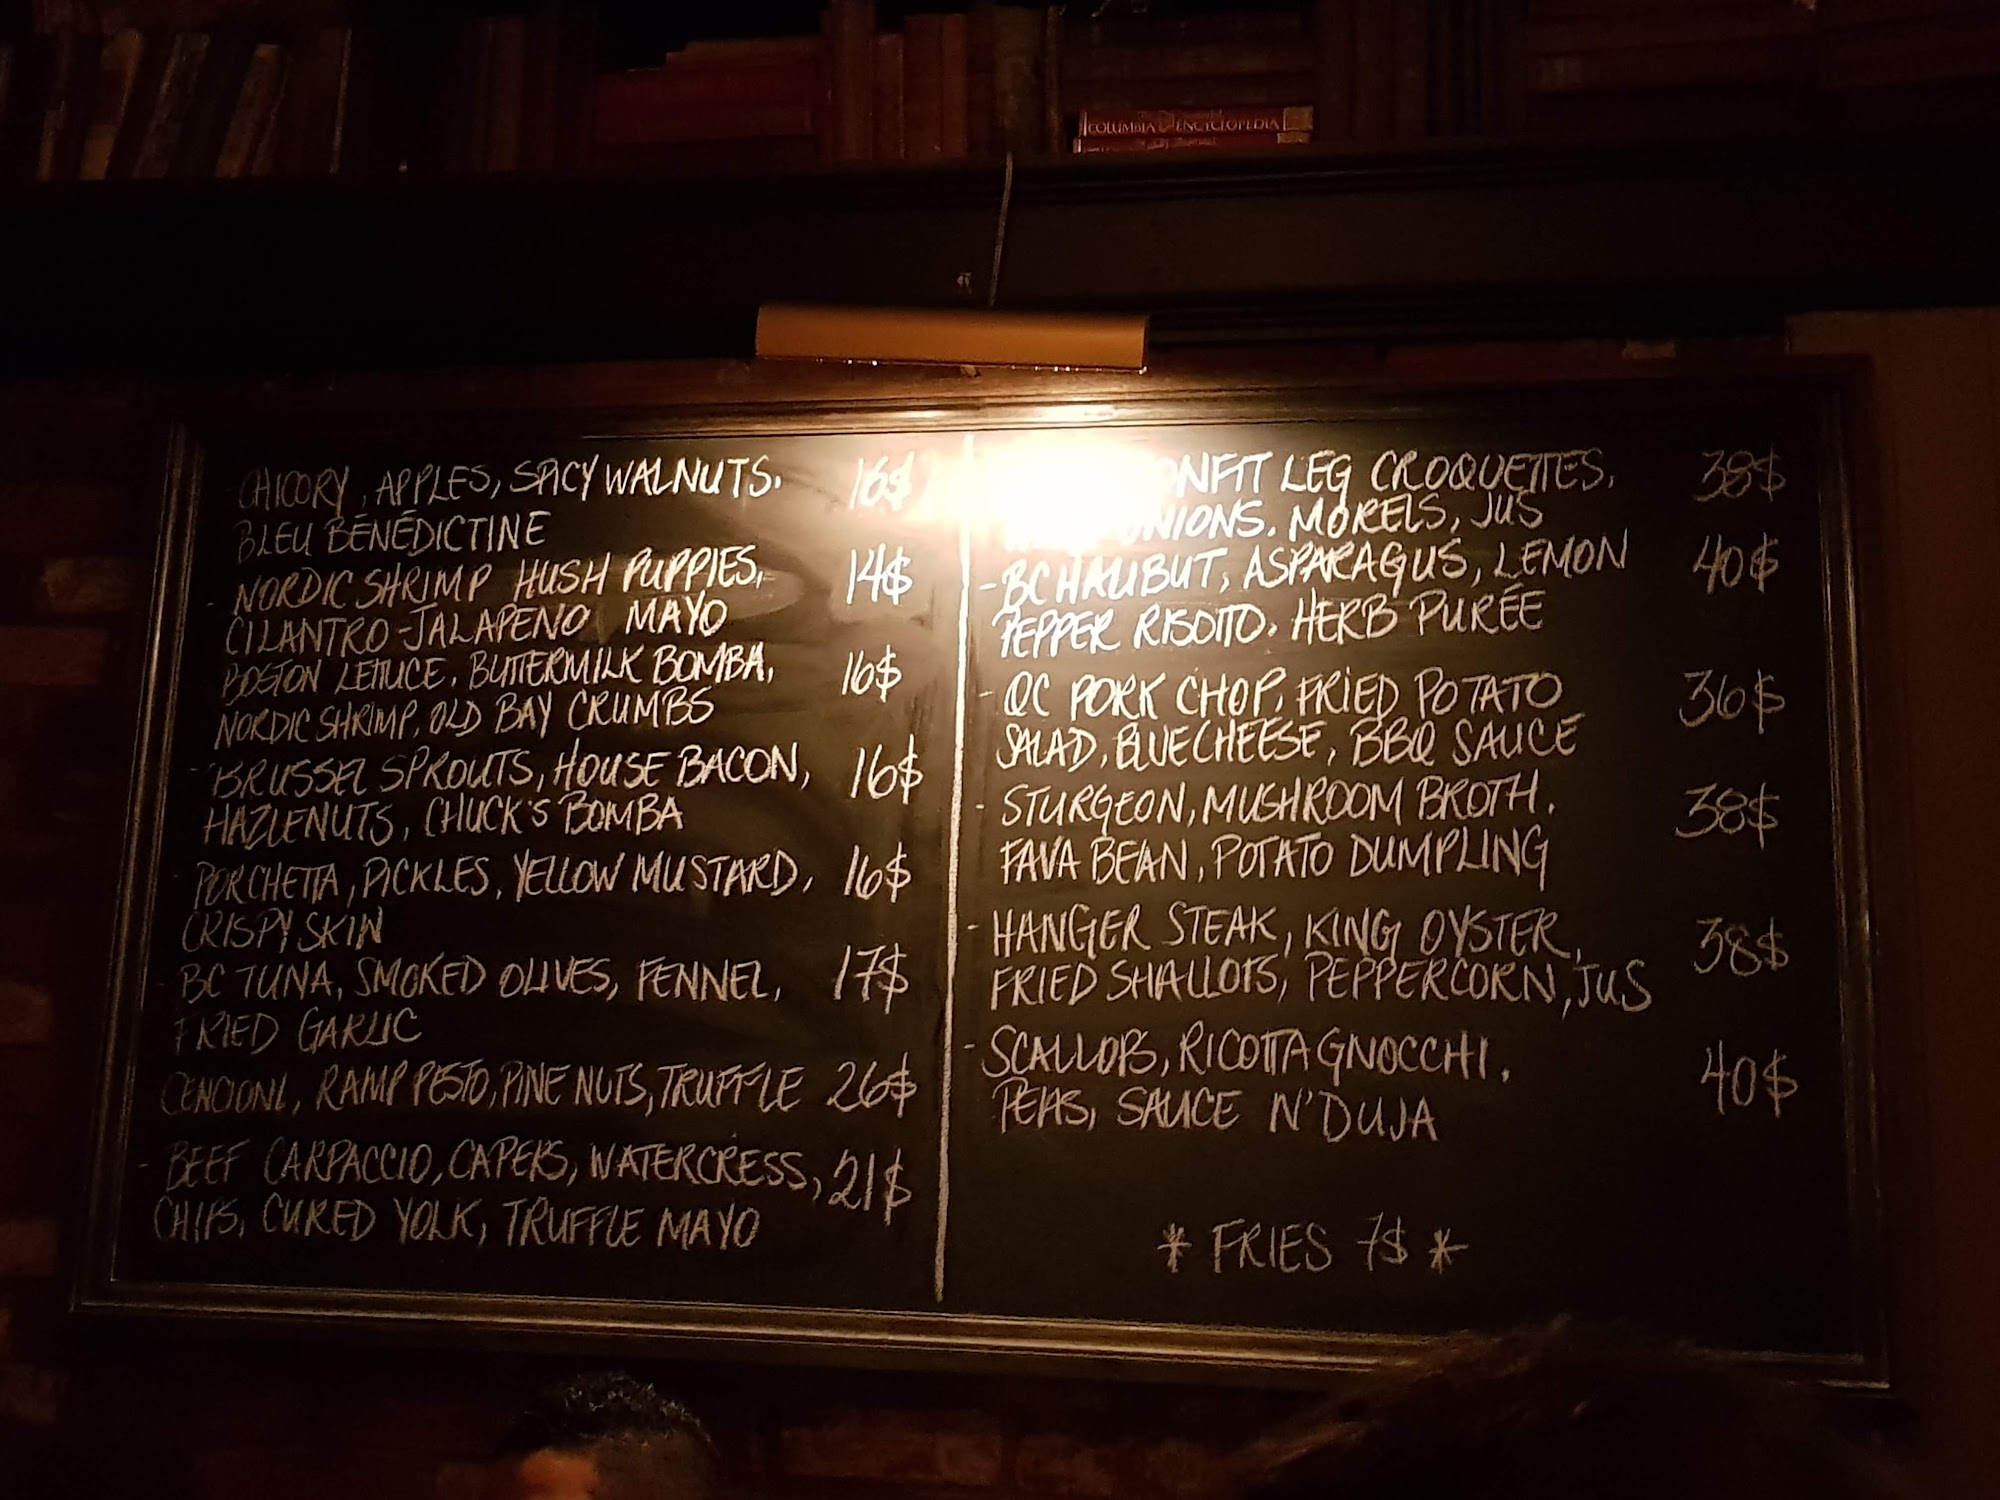 COLUMBIA ENCYCLOPEDIA
- CHICORY, APPLES, SPICY WALNUTS. 16$
BLEU BÉNÉDICTINE
- NORDIC SHRIMP HUSH PUPPIES, 14$
CILANTRO-JALAPENO MAYO
BOSTON LETTUCE, BUTTERMILK BOMBA, 16$
NORDIC SHRIMP, OLD BAY CRUMBS
- BRUSSEL SPROUTS, HOUSE BACON, 16$
HAZLENUTS, CHUCK'S BOMBA
- PORCHETTA, PICKLES, YELLOW MUSTARD, 16$
CRISPY SKIN
- BC TUNA, SMOKED OLIVES, FENNEL, 17$
FRIED GARLIC
CENCIONI, RAMP PESTO, PINE NUTS, TRUFFLE 26$
- BEEF CARPACCIO, CAPERS, WATERCRESS, 21$
CHIPS, CURED YOLK, TRUFFLE MAYO
LEG CROQUETTES, 38$
ONIONS. MORELS, JUS
- BC HALIBUT, ASPARAGUS, LEMON 40$
PEPPER RISOTTO. HERB PURÉE
- QC PORK CHOP, FRIED POTATO 36$
SALAD, BLUE CHEESE, BBQ SAUCE
- STURGEON, MUSHROOM BROTH. 38$
FAVA BEAN, POTATO DUMPLING
- HANGER STEAK, KING OYSTER, 38$
FRIED SHALLOTS, PEPPERCORN, JUS
- SCALLOPS, RICOTTA GNOCCHI. 40$
PEAS, SAUCE N'DUJA
* FRIES 7$ *